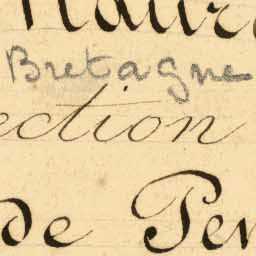 Bretagne
ection
de Pen